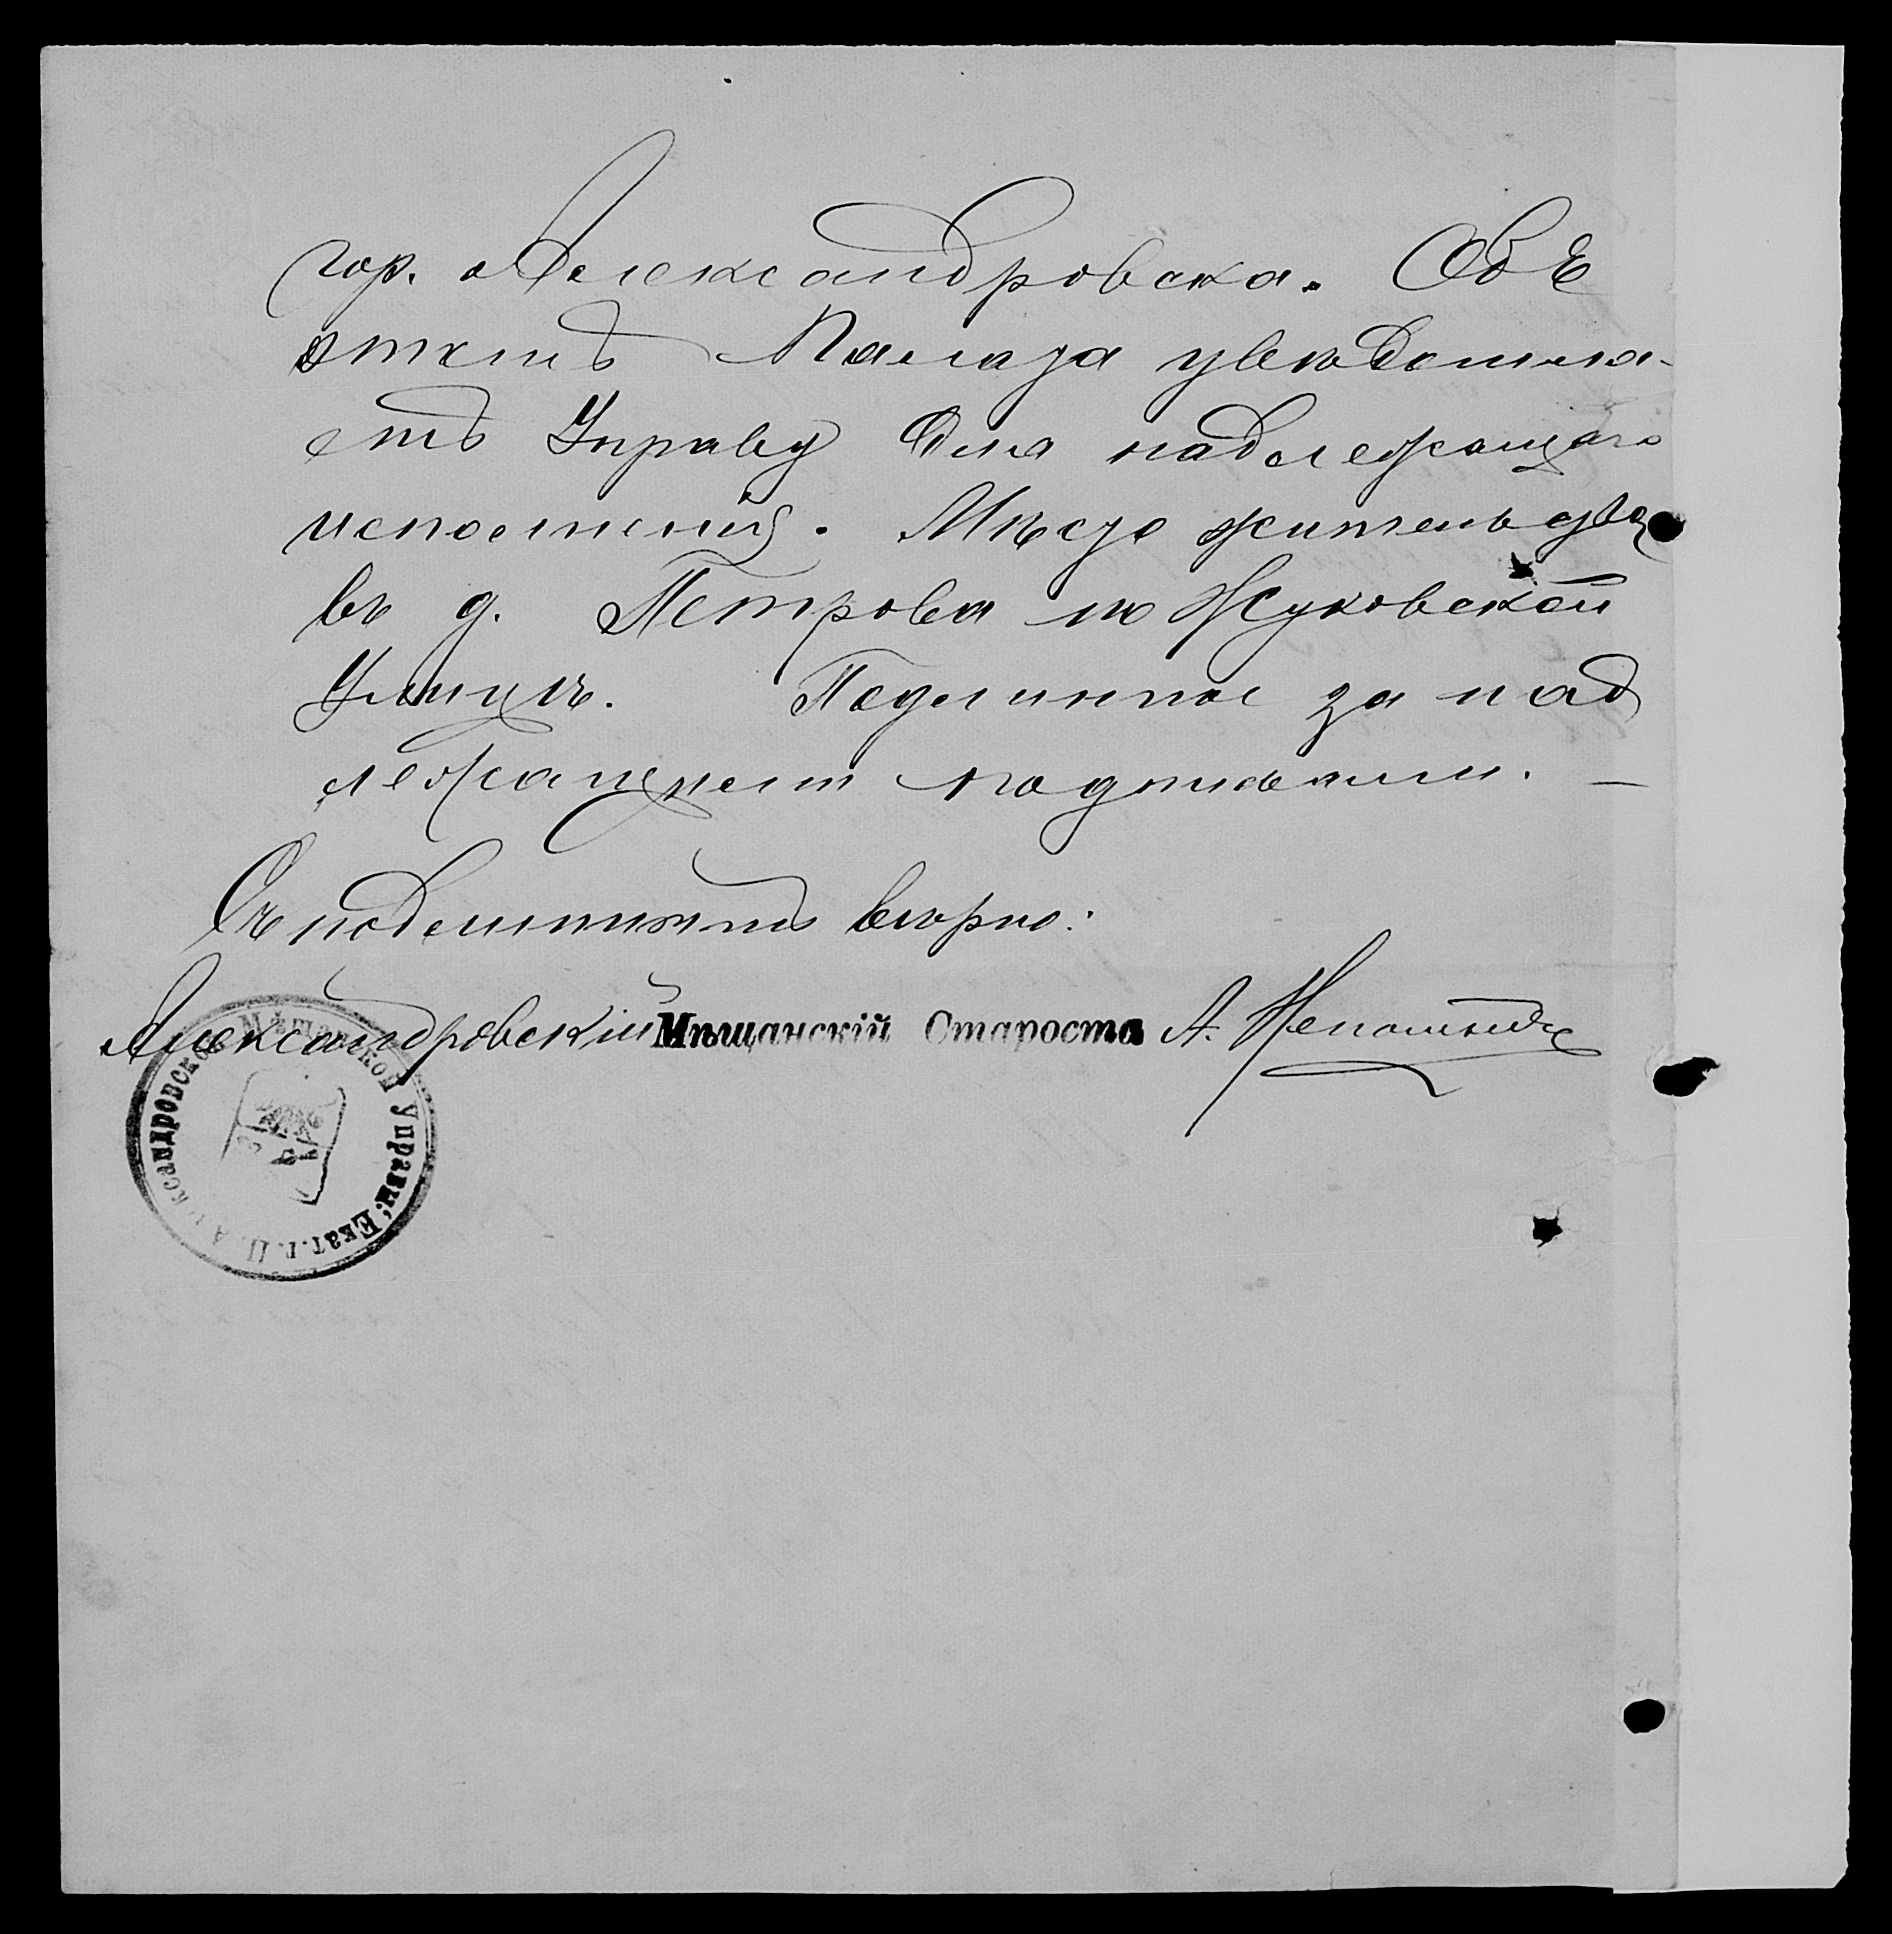 гор. Александровска. Объ
этомъ Палата увѣдомля-
етъ Управу для надлежащаго
исполненія. Мѣсто жительства
въ д. Петрова по Жуковской
Улицѣ. Подлинное за над
лежащимъ подписомъ. —
Съ подлиннымъ вѣрно:
Александровскій Мѣщанскій Староста А.
Александровской Мѣщанской Управы: Екат. г. П.